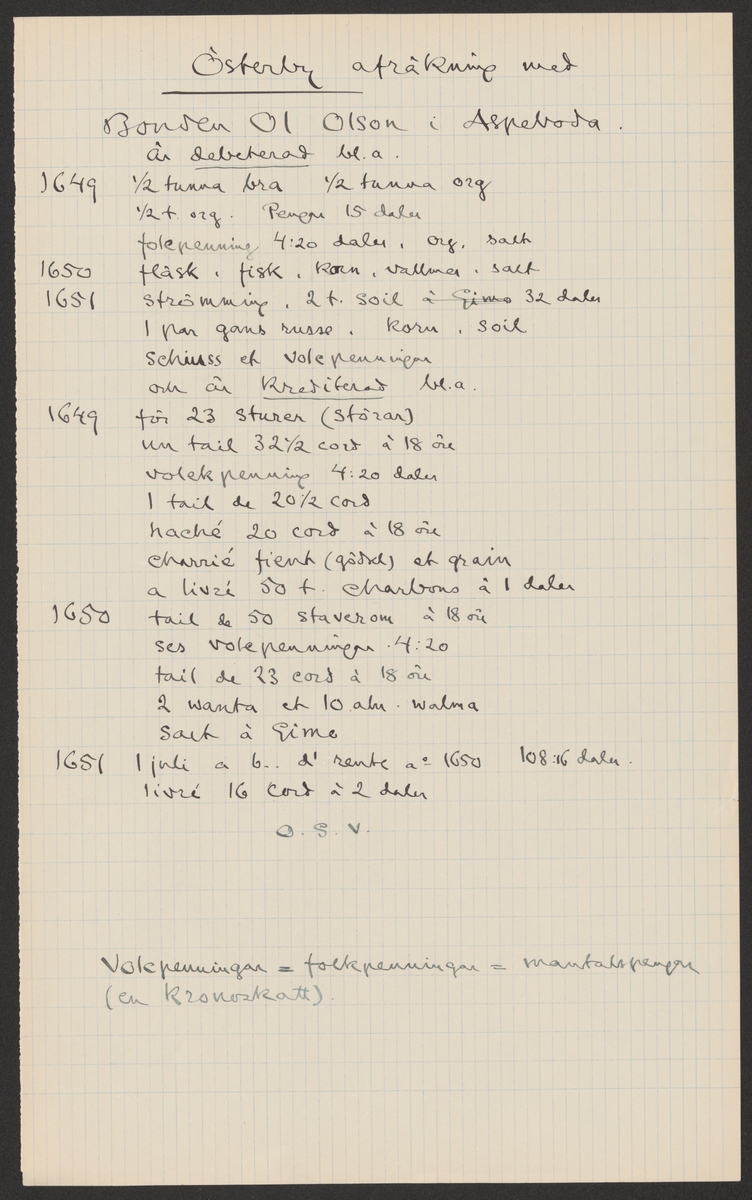 Österby afräkning med
Bonden Ol Olson i Aspeboda.
är debeterad bl.a.
1649 1/2 tunna bra 1/2 tunna org
1/2 t. org. Pengar 15 daler
folkpenning 4:20 daler, org, salt
1650 fläsk, fisk, korn, vallmar, salt
1651 strömming, 2 t. soil à Gimo 32 daler
1 par gans russe, korn, soil
schiuss et volkpenningar
och är krediterad bl.a.
1649 för 23 sturer (störar)
un tail 32 1/2 cord à 18 öre
volekpenning 4:20 daler
1 tail de 20 1/2 cord
haché 20 cord à 18 öre
charrié fient (gödsel) et grain
a livré 50 t. charbons à 1 daler
1650 tail de 50 staverom à 18 öre
ses volkpenningar 4:20
tail de 23 cord à 18 öre
2 wanta et 10 aln. walma
Salt à Gimo
1651 1 juli a b.. d' rente a° 1650 108:16 daler.
livré 16 Cord à 2 daler
O.S.V.
Volkpenningar = folkpenningar = mantalspengar
(en Kronoskatt).